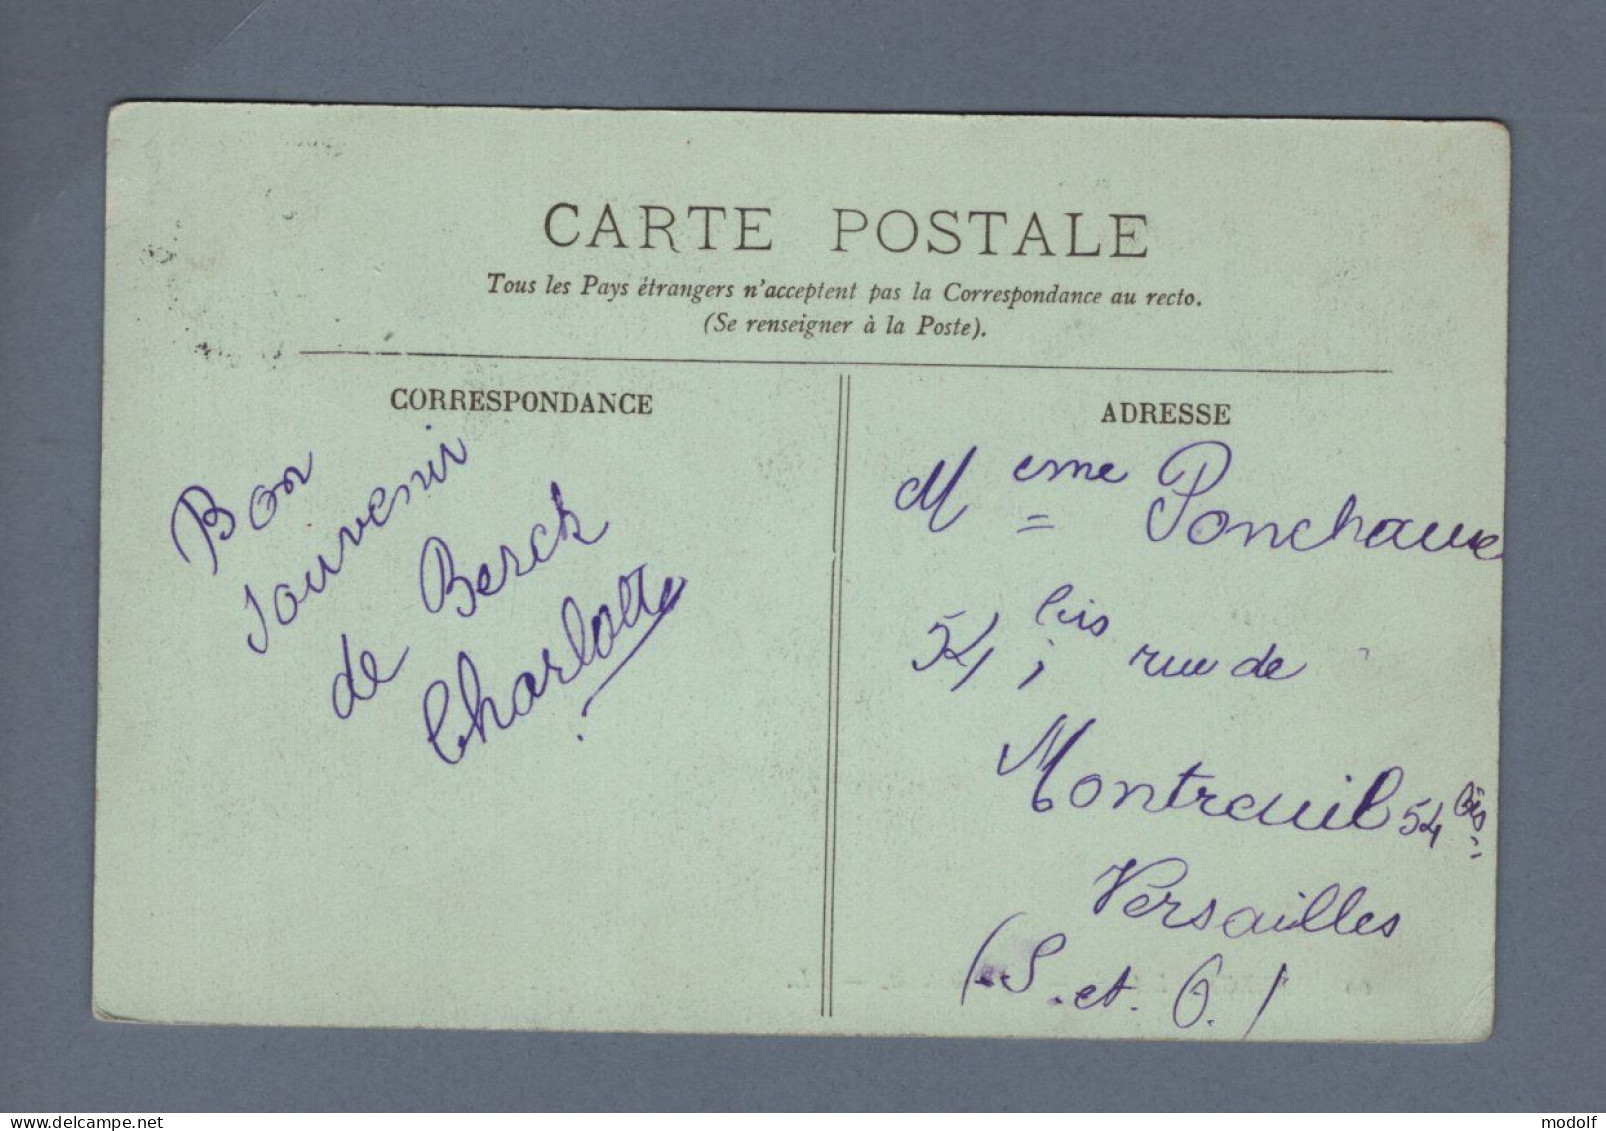 CARTE POSTALE
Tous les Pays étrangers n'acceptent pas la Correspondance au recto.
(Se renseigner à la Poste).
CORRESPONDANCE
Bon
souvenir
de Berck
Charlotte
ADRESSE
Meme Ponchaux
54, bis rue de
Montreuil 54 bis
Versailles
(S. et. O.)
delcampe.net
modolf